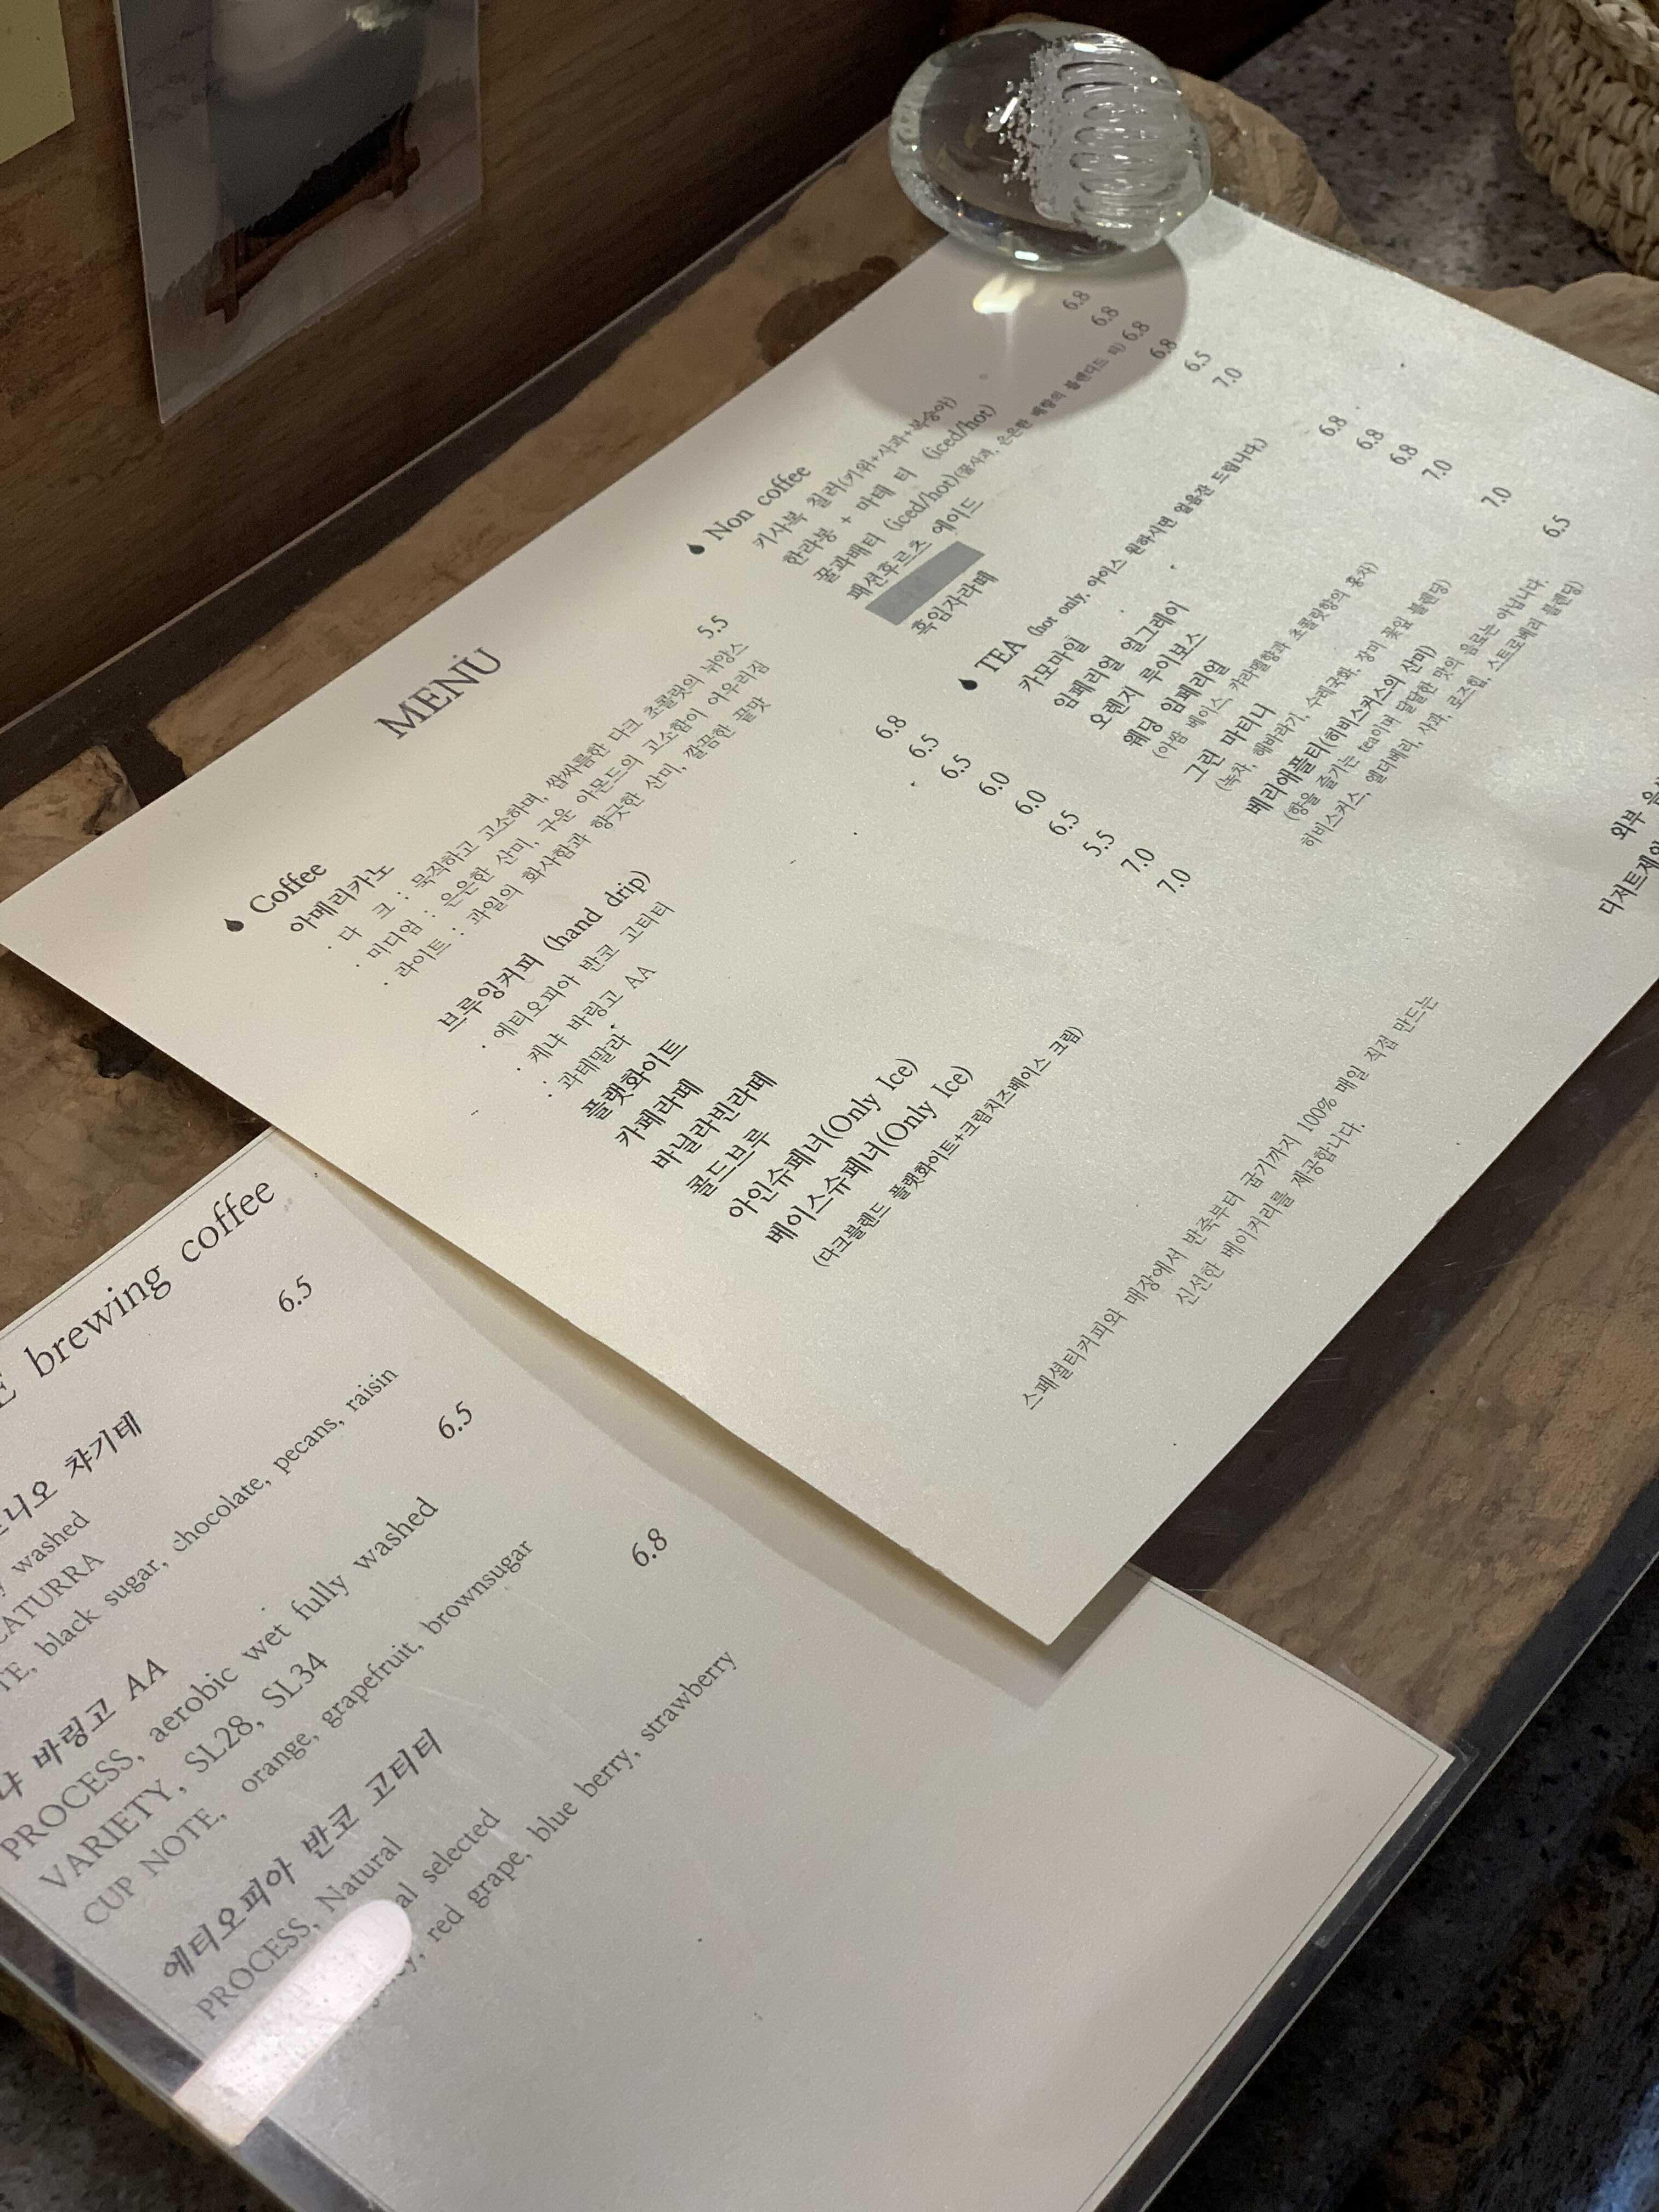 MENU
Coffee
아메리카노 5.5
· 다 크 : 묵직하고 고소하며, 쌉싸름한 다크 초콜릿의 뉘앙스
· 미디엄 : 은은한 산미, 구운 아몬드의 고소함이 어우러짐
· 라이트 : 과일의 화사함과 향긋한 산미, 깔끔한 끝맛
브루잉커피 (hand drip)
· 에티오피아 반코 고티티 6.8
· 케냐 바링고 AA 6.5
: 과테말라 6.5
플랫화이트 6.0
카페라떼 6.0
바닐라빈라떼 6.5
콜드브루 5.5
아인슈페너(Only Ice) 7.0
베이스슈페너(Only Ice) 7.0
(다크블렌드 플랫화이트+크림치즈베이스 크림)
Non coffee
키사복 칠러(키위+사과+복숭아) 6.8
한라봉 + 마테 티 (iced/hot) 6.8
꿀과배티 (iced/hot)(꿀사과, 은은한 배향의 블렌디드 티) 6.8
패션후르츠 에이드 6.8
6.5
흑임자라떼 7.0
TEA (hot only, 아이스 원하시면 얼음잔 드립니다.)
카모마일 6.8
임페리얼 얼그레이 6.8
오렌지 루이보스 6.8
웨딩 임페리얼 7.0
(아쌈 베이스, 카라멜향과 초콜릿향의 홍차)
그린 마티니 7.0
(녹차, 해바라기, 수레국화, 장미 꽃잎 블렌딩)
베리애플티(히비스커스의 산미) 6.5
(향을 즐기는 tea이며 달달한 맛의 음료는 아닙니다.
히비스커스, 엘더베리, 사과, 로즈힙, 스트로베리 블렌딩)
외부
디저트
스페셜티커피와 매장에서 반죽부터 굽기까지 100% 매일 직접 만드는
신선한 베이커리를 제공합니다.
brewing coffee
챠기테 6.5
washed
CATURRA
black sugar, chocolate, pecans, raisin
바링고 AA 6.5
PROCESS, aerobic wet fully washed
VARIETY, SL28, SL34
CUP NOTE, orange, grapefruit, brownsugar
에티오피아 반코 고티티 6.8
PROCESS, Natural
selected
red grape, blue berry, strawberry